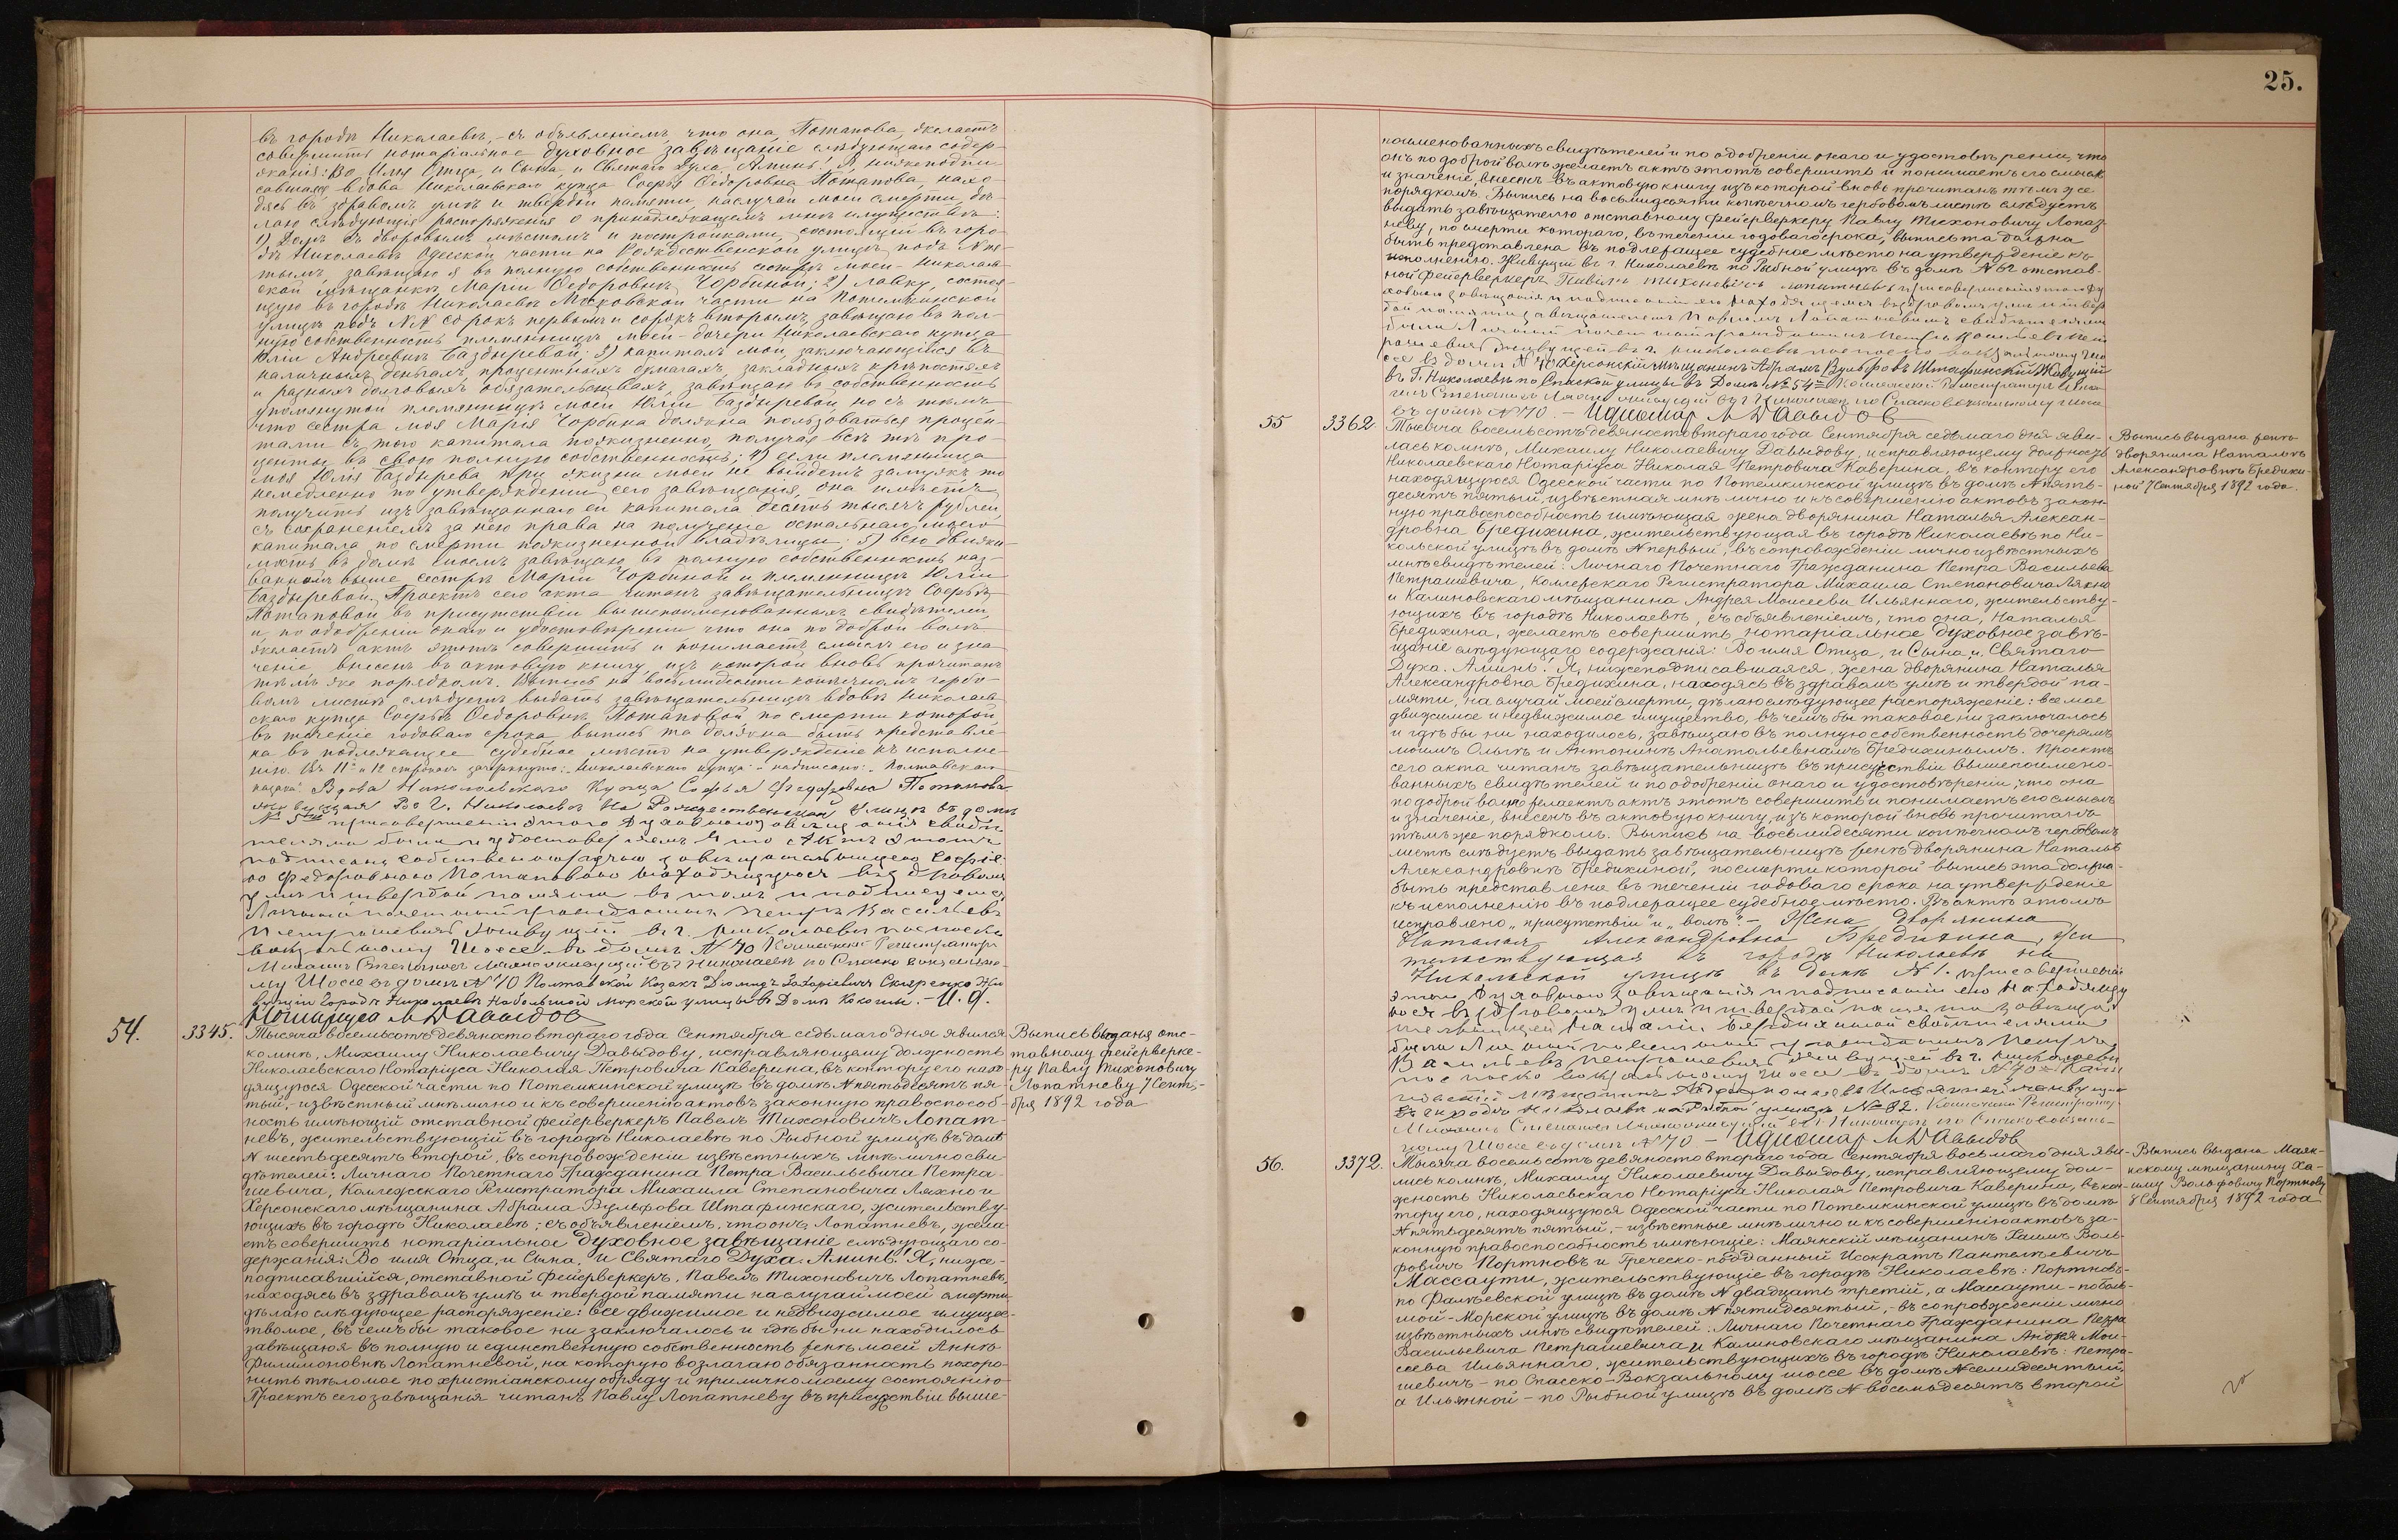 въ городѣ Николаевѣ, съ объявленіемъ что она, Потапова, желаетъ
совершить нотаріальное духовное завѣщаніе слѣдующаго содер-
жанія: Во Имя Отца, и Сына, и Святаго Духа. Аминь! Я, нижеподпи-
савшаяся вдова Николаевскаго купца Софья Ѳедоровна Потапова, нахо-
дясь въ здравомъ умѣ и твердой памяти, наслучай моей смерти, дѣ-
лаю слѣдующія распоряженія о принадлежащемъ мнѣ имуществѣ:
1) Домъ съ дворовымъ мѣстомъ и постройками, состоящій въ горо-
дѣ Николаевѣ Одесской части на Рождественской улицѣ подъ № пя-
тымъ, завѣщаю я въ полную собственность сестрѣ моей - Николаев-
ской мѣщанкѣ Маріи Ѳедоровнѣ Чорбиной; 2) лавку, состоя-
щую въ городѣ Николаевѣ Московской части на Потемкинской
улицѣ подъ №№ сорокъ первымъ и сорокъ вторымъ, завѣщаю въ пол-
ную собственность племянницѣ моей - дочери Николаевскаго купца
Юліи Андреевнѣ Баздыревой; 3) капиталъ мой, заключающійся въ
наличныхъ деньгахъ, процентныхъ бумагахъ, закладныхъ крѣпостяхъ
и разныхъ долговыхъ обязательствахъ, завѣщаю въ собственность
упомянутой племянницѣ моей Юліи Баздыревой, но съ тѣмъ
что сестра моя Марія Чорбина должна пользоваться процен-
тами съ того капитала пожизненно, получая всѣ тѣ про-
центы въ свою полную собственность; 4) если племянница
моя Юлія Баздырева при жизни моей не выйдетъ замужъ то
немедленно по утвержденіи сего завѣщанія, она имѣетъ
получить изъ завѣщаннаго ей капитала десять тысячъ рублей
съ сохраненіемъ за нею права на полученіе остальнаго моего
капитала по смерти пожизненной владѣлицы; 5) всю движи-
мость въ домѣ моемъ завѣщаю въ полную собственность наз-
ваннымъ выше сестрѣ Маріи Чорбиной и племянницѣ Юліи
Баздыревой. Проектъ сего акта читанъ завѣщательницѣ Софьѣ
Потаповой въ присутствіи вышепоименованныхъ свидѣтелей
и, по одобреніи онаго и удостовѣреніи что она по доброй волѣ
желаетъ актъ этотъ совершить и понимаетъ смыслъ его и зна-
ченіе внесенъ въ актовую книгу, изъ которой вновь прочитанъ
тѣмъ же порядкомъ. Выпись на восьмидесяти копѣечномъ гербо-
вомъ листѣ слѣдуетъ выдать завѣщательницѣ вдовѣ Николаев-
скаго купца Софьѣ Ѳедоровнѣ Потаповой, по смерти которой,
въ теченіе годоваго срока выпись та должна быть представле-
на въ подлежащее судебное мѣсто на утвержденіе къ исполне-
нію. Въ 11 и 12 строкахъ зачеркнуто: „Николаевскаго купца" - надписано: „Полтавскаго
казака". Вдова Николаевского Купца Софья Федоровна Потапова
живущая Во Г. Николаевѣ На Рождественской Улицѣ въ домѣ
№ 5 присовершеніи этого Духовного завещания свиде
телями были и удостоверяемъ что Актъ этотъ
подписанъ собственноручно завещательницею Софіе
ю Федоровною Потаповою находящуюся въ здравомъ
умѣ и твердой памяти въ томъ и подписуемся
Личный почетный гражданинъ Петръ Васильевъ
Петрашевичъ живущий въ г. Николаевѣ поспаско
вокзальному Шоссе въ домѣ № 70 Коллежскій Регистраторъ
Михаилъ Степановъ Ляхно живущій въ г Николаевѣ по Спаско вокзально-
му Шоссе въ домѣ № 70 Полтавской Козакъ Диомидъ Захаріевичъ Скляренко Жи
вущій Городѣ Николаевѣ Набольшой Морской улицы въ Домѣ Кокоши. - И. д.
Нотаріуса М Давыдов
54.
3345.
Тысяча восемьсотъ девяносто втораго года Сентября седьмаго дня явился
ко мнѣ, Михаилу Николаевичу Давыдову, исправляющему должность
Николаевскаго Нотаріуса Николая Петровича Каверина, въ контору его нахо-
дящуюся Одесской части по Потемкинской улицѣ въ домѣ № пятьдесятъ пя-
тый, - извѣстный мнѣ лично и къ совершенію актовъ законную правоспособ-
ность имѣющій отставной фейерверкеръ Павелъ Тихоновичъ Лопат-
невъ, жительствующій въ городѣ Николаевѣ по Рыбной улицѣ въ домѣ
№ шестьдесятъ второй, въ сопровожденіи извѣстныхъ мнѣ лично сви-
дѣтелей: Личнаго Почетнаго Гражданина Петра Васильевича Петра-
шевича, Коллежскаго Регистратора Михаила Степановича Ляхно и
Херсонскаго мѣщанина Абрама Вульфова Штафинскаго, жительству-
ющихъ въ городѣ Николаевѣ; съ объявленіемъ, что онъ, Лопатневъ, жела-
етъ совершить нотаріальное духовное завѣщаніе слѣдующаго со-
держанія: Во имя Отца, и Сына, и Святаго Духа. Аминь! Я, ниже-
подписавшійся, отставной фейерверкеръ, Павелъ Тихоновичъ Лопатневъ,
находясь въ здравомъ умѣ и твердой памяти на случай моей смерти
дѣлаю слѣдующее распоряженіе: все движимое и недвижимое имущес-
тво мое, въ чемъ бы таковое ни заключалось и гдѣ бы ни находилось
завѣщаю я въ полную и единственную собственность женѣ моей Аннѣ
Филимоновнѣ Лопатневой, на которую возлагаю обязанность похоро-
нить тѣло мое по христіанскому обряду и прилично моему состоянію.
Проектъ сего завѣщанія читанъ Павлу Лопатневу въ присутствіи выше-
Выпись выдана отс-
тавному фейерверке-
ру Павлу Тихоновичу
Лопатневу 7 Сентя-
бря 1892 года
25.
поименованныхъ свидѣтелей и по одобреніи онаго и удостовѣреніи, что
онъ по доброй волѣ желаетъ актъ этотъ совершить и понимаетъ его смыслъ
и значеніе, внесенъ въ актовую книгу изъ которой вновь прочитанъ тѣмъ же
порядкомъ. Выпись на восьмидесяти копѣечномъ гербовомъ листѣ слѣдуетъ
выдать завѣщателю отставному фейерверкеру Павлу Тихоновичу Лопат-
неву, по смерти котораго, въ теченіи годоваго срока, выпись та должна
быть представлена въ подлежащее судебное мѣсто на утвержденіе къ
исполненію. Живущій въ г. Николаевѣ по Рыбной улицѣ въ домѣ № 62 отстав-
ной фейерверкеръ Павелъ Тихоновичъ Лопатневъ присовершении этого Ду
ховного завещания и подписании его находящемся въ здравомъ уме и твер
дой памяти завещателемъ Павломъ Лопатневымъ свидетелями
были Личный почетный гражданинъ Петръ Васильевъ Пет
рашевичъ живущей въ г. Николаевѣ поспаско вокзальному Шо
ссе въ домѣ № 70 Херсонскій мѣщанинъ Абрамъ Вульфовъ Штафинский Живущий
въ Г. Николаевѣ по Спаской улицы въ Домѣ № 54 Коллежскій Регистраторъ Миха-
илъ Степановъ Ляхно живущій въ г Николаевѣ по Спасковокзальному шоссе
въ домѣ № 70. - И д нотар М Давыдов
55
3362.
Тысяча восемьсотъ девяносто втораго года Сентября седьмаго дня яви-
лась ко мнѣ, Михаилу Николаевичу Давыдову, исправляющему должность
Николаевскаго Нотаріуса Николая Петровича Каверина, въ контору его
находящуюся Одесской части по Потемкинской улицѣ въ домѣ № пять-
десятъ пятый, извѣстная мнѣ лично и къ совершенію актовъ закон-
ную правоспособность имѣющая жена дворянина Наталья Алексан-
дровна Бредихина, жительствующая въ городѣ Николаевѣ по Ни-
кольской улицѣ въ домѣ № первый, въ сопровожденіи лично извѣстныхъ
мнѣ свидѣтелей: Личнаго Почетнаго Гражданина Петра Васильева
Петрашевича, Коллежскаго Регистратора Михаила Степановича Ляхно
и Калиновскаго мѣщанина Андрея Моисеева Ильяннаго, жительству-
ющихъ въ городѣ Николаевѣ, съ объявленіемъ, что она, Наталья
Бредихина, желаетъ совершить нотаріальное духовное завѣ-
щаніе слѣдующаго содержанія: Во имя Отца, и Сына, и Святаго
Духа. Аминь! Я, нижеподписавшаяся, жена дворянина Наталья
Александровна Бредихина, находясь въ здравомъ умѣ и твердой па-
мяти, на случай моей смерти, дѣлаю слѣдующее распоряженіе: все мое
движимое и недвижимое имущество, въ чемъ бы таковое ни заключалось
и гдѣ бы ни находилось, завѣщаю въ полную собственность дочерямъ
моимъ Ольгѣ и Антонинѣ Анатольевнамъ Бредихинымъ. Проектъ
сего акта читанъ завѣщательницѣ въ присутствіи вышепоимено-
ванныхъ свидѣтелей и по одобреніи онаго и удостовѣреніи, что она
по доброй волѣ желаетъ актъ этотъ совершить и понимаетъ его смыслъ
и значеніе, внесенъ въ актовую книгу, изъ которой вновь прочитанъ
тѣмъ же порядкомъ. Выпись на восьмидесяти копѣечномъ гербовомъ
листѣ слѣдуетъ выдать завѣщательницѣ женѣ дворянина Натальѣ
Александровнѣ Бредихиной, по смерти которой выпись эта должна
быть представлена въ теченіи годоваго срока на утвержденіе
къ исполненію въ подлежащее судебное мѣсто. Въ актѣ этомъ
исправлено „присутствіи" и „волѣ". - Жена Дворянина
Наталья Александровна Бредихина, жи
тельствующая въ городѣ Николаевѣ на
Никольской улицѣ въ домѣ № 1. присовершении
этого Духовного завещания и подписании его находящу
юся въ здравомъ уме и твердой памяти завещат
тельницей Натали. Бередихиной свидетелями
были Личный почетный гражданинъ Петръ
Васильевъ Петрашевичъ живущей въ г. Николаеве
поспаско вокзальному шоссе въ домѣ № 70 Кали
новский Мѣщанинъ Андрей Моисеевъ Ильянней живущи
въ городѣ Николаевѣ на Рыбной улицѣ № 82. Коллежскій Регистраторъ
Михаилъ Степановъ Ляхно живущій въ г. Николаевѣ по Спасковокзаль-
ному Шоссе въ домѣ № 70 - И д нотар М Давыдов
Выпись выдана женѣ
дворянина Натальѣ
Александровнѣ Бредихи-
ной 7 Сентября 1892 года.
56.
3372.
Тысяча восемьсотъ девяносто втораго года Сентября восьмаго дня яви-
лись ко мнѣ, Михаилу Николаевичу Давыдову, исправляющему дол-
жность Николаевскаго Нотаріуса Николая Петровича Каверина, въ кон-
тору его, находящуюся Одесской части по Потемкинской улицѣ въ домѣ
№ пятьдесятъ пятый, - извѣстные мнѣ лично и къ совершенію актовъ за-
конную правоспособность имѣющіе: Маякскій мѣщанинъ Хаимъ Воль-
фовичъ Портновъ и Греческо-подданный Исократъ Пантелѣевичъ
Массаути, жительствующіе въ городѣ Николаевѣ: Портновъ-
по Фалѣевской улицѣ въ домѣ № двадцать третій, а Массаути - по Боль-
шой-Морской улицѣ въ домѣ № пятидесятый, - въ сопровожденіи лично
извѣстныхъ мнѣ свидѣтелей: Личнаго Почетнаго Гражданина Петра
Васильевича Петрашевича и Калиновскаго мѣщанина Андрея Мои-
сеева Ильяннаго, жительствующихъ въ городѣ Николаевѣ: Петра-
шевичъ - по Спасско-Вокзальному шоссе въ домѣ № семидесятый
а Ильянной - по Рыбной улицѣ въ домѣ № восемьдесятъ второй
Выпись выдана Маяк-
скому мѣщанину Ха-
иму Вольфовичу Портнову
8 Сентября 1892 года